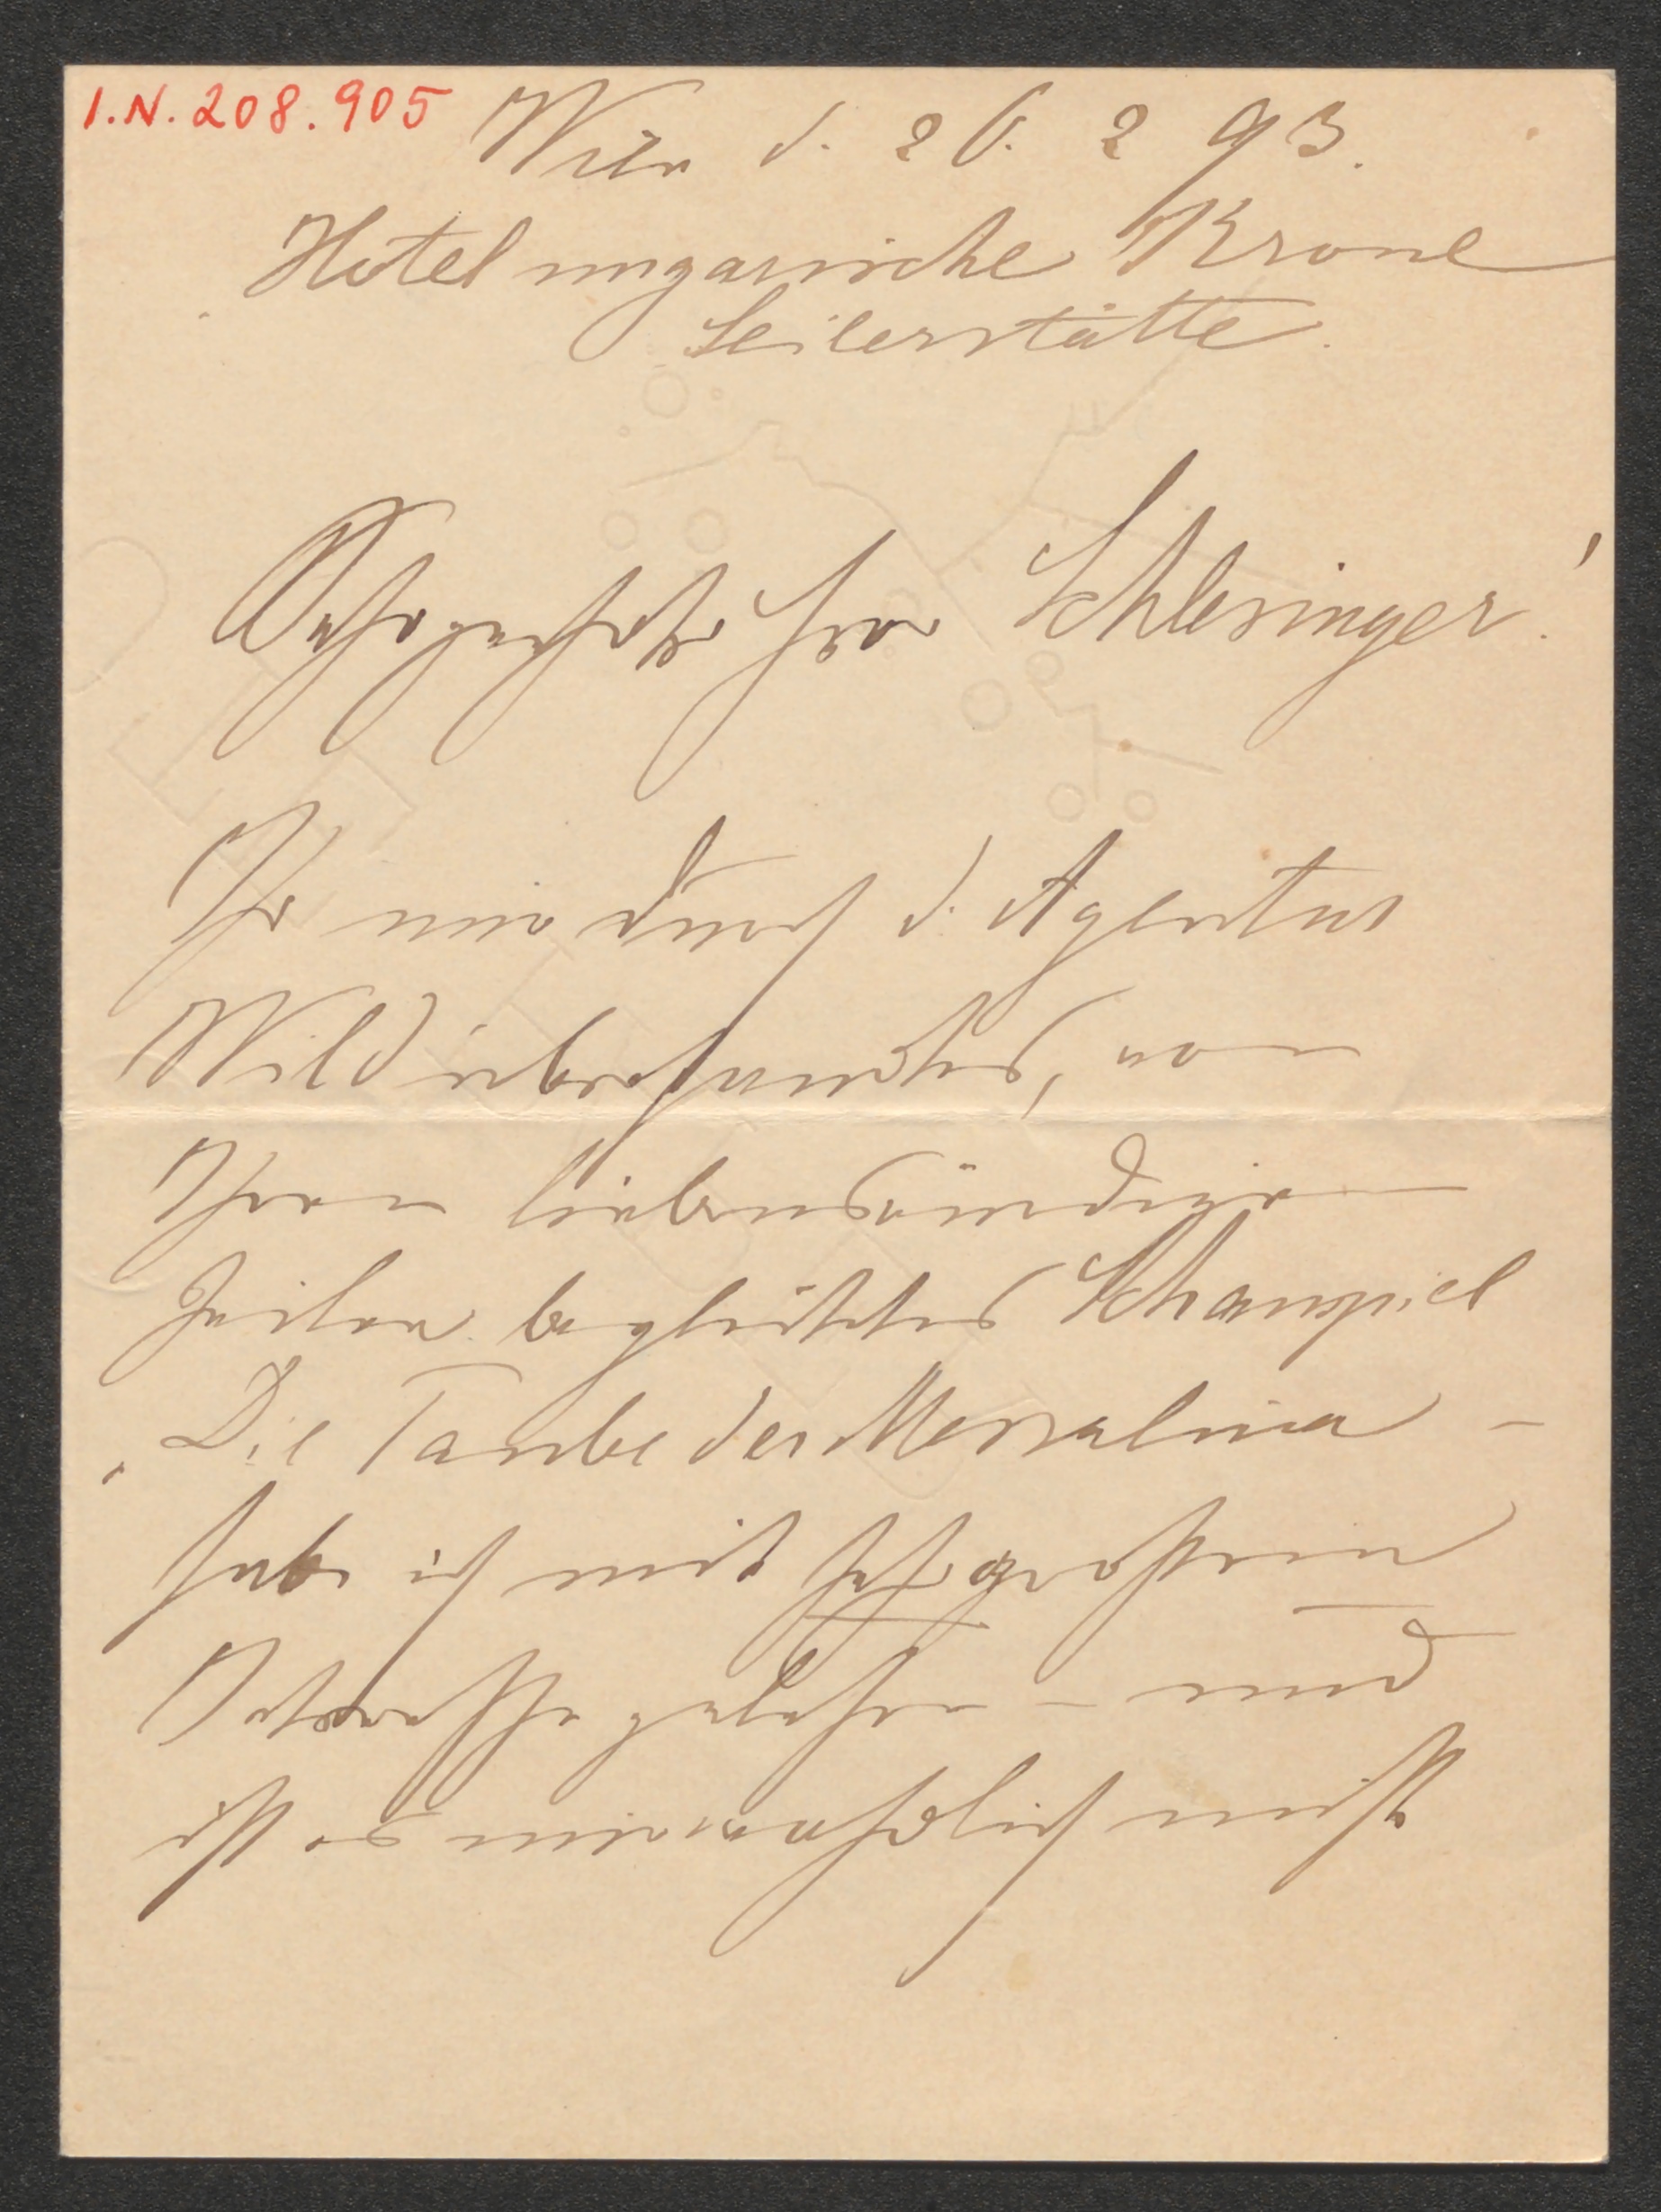 I.N. 208.905
Wien d. 26. 2 93.
Hotel ungarische Krone
Seilerstätte.
Sehrgeehrter Herr Schlesinger!
Ihr mir durch d. Agentur
Wild übersandtes, von
Ihren liebenswürdigen
Zeilen begleitetes Schauspiel
„Die Taube der Messalina –
habe ich mit sehr großem
Interesse gelesen – und
ist es mir wahrlich nicht